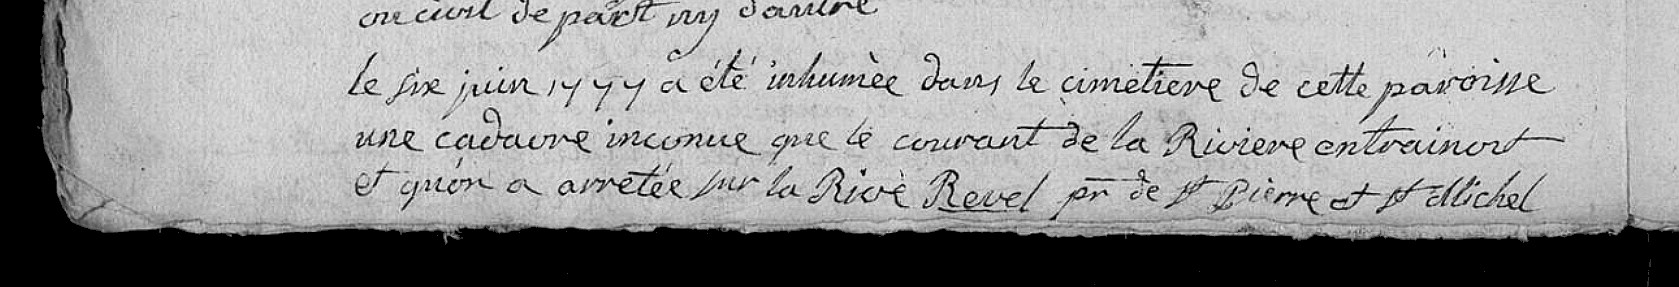 ou civil de part ny dautre
le six juin 1777 a été inhumèe dans le cimetiere de cette paroisse
une cadavre inconue que le courant de la Riviere entrainoit
et qu'on a arretée sur la Rive Revel pr de st Pierre et st Michel